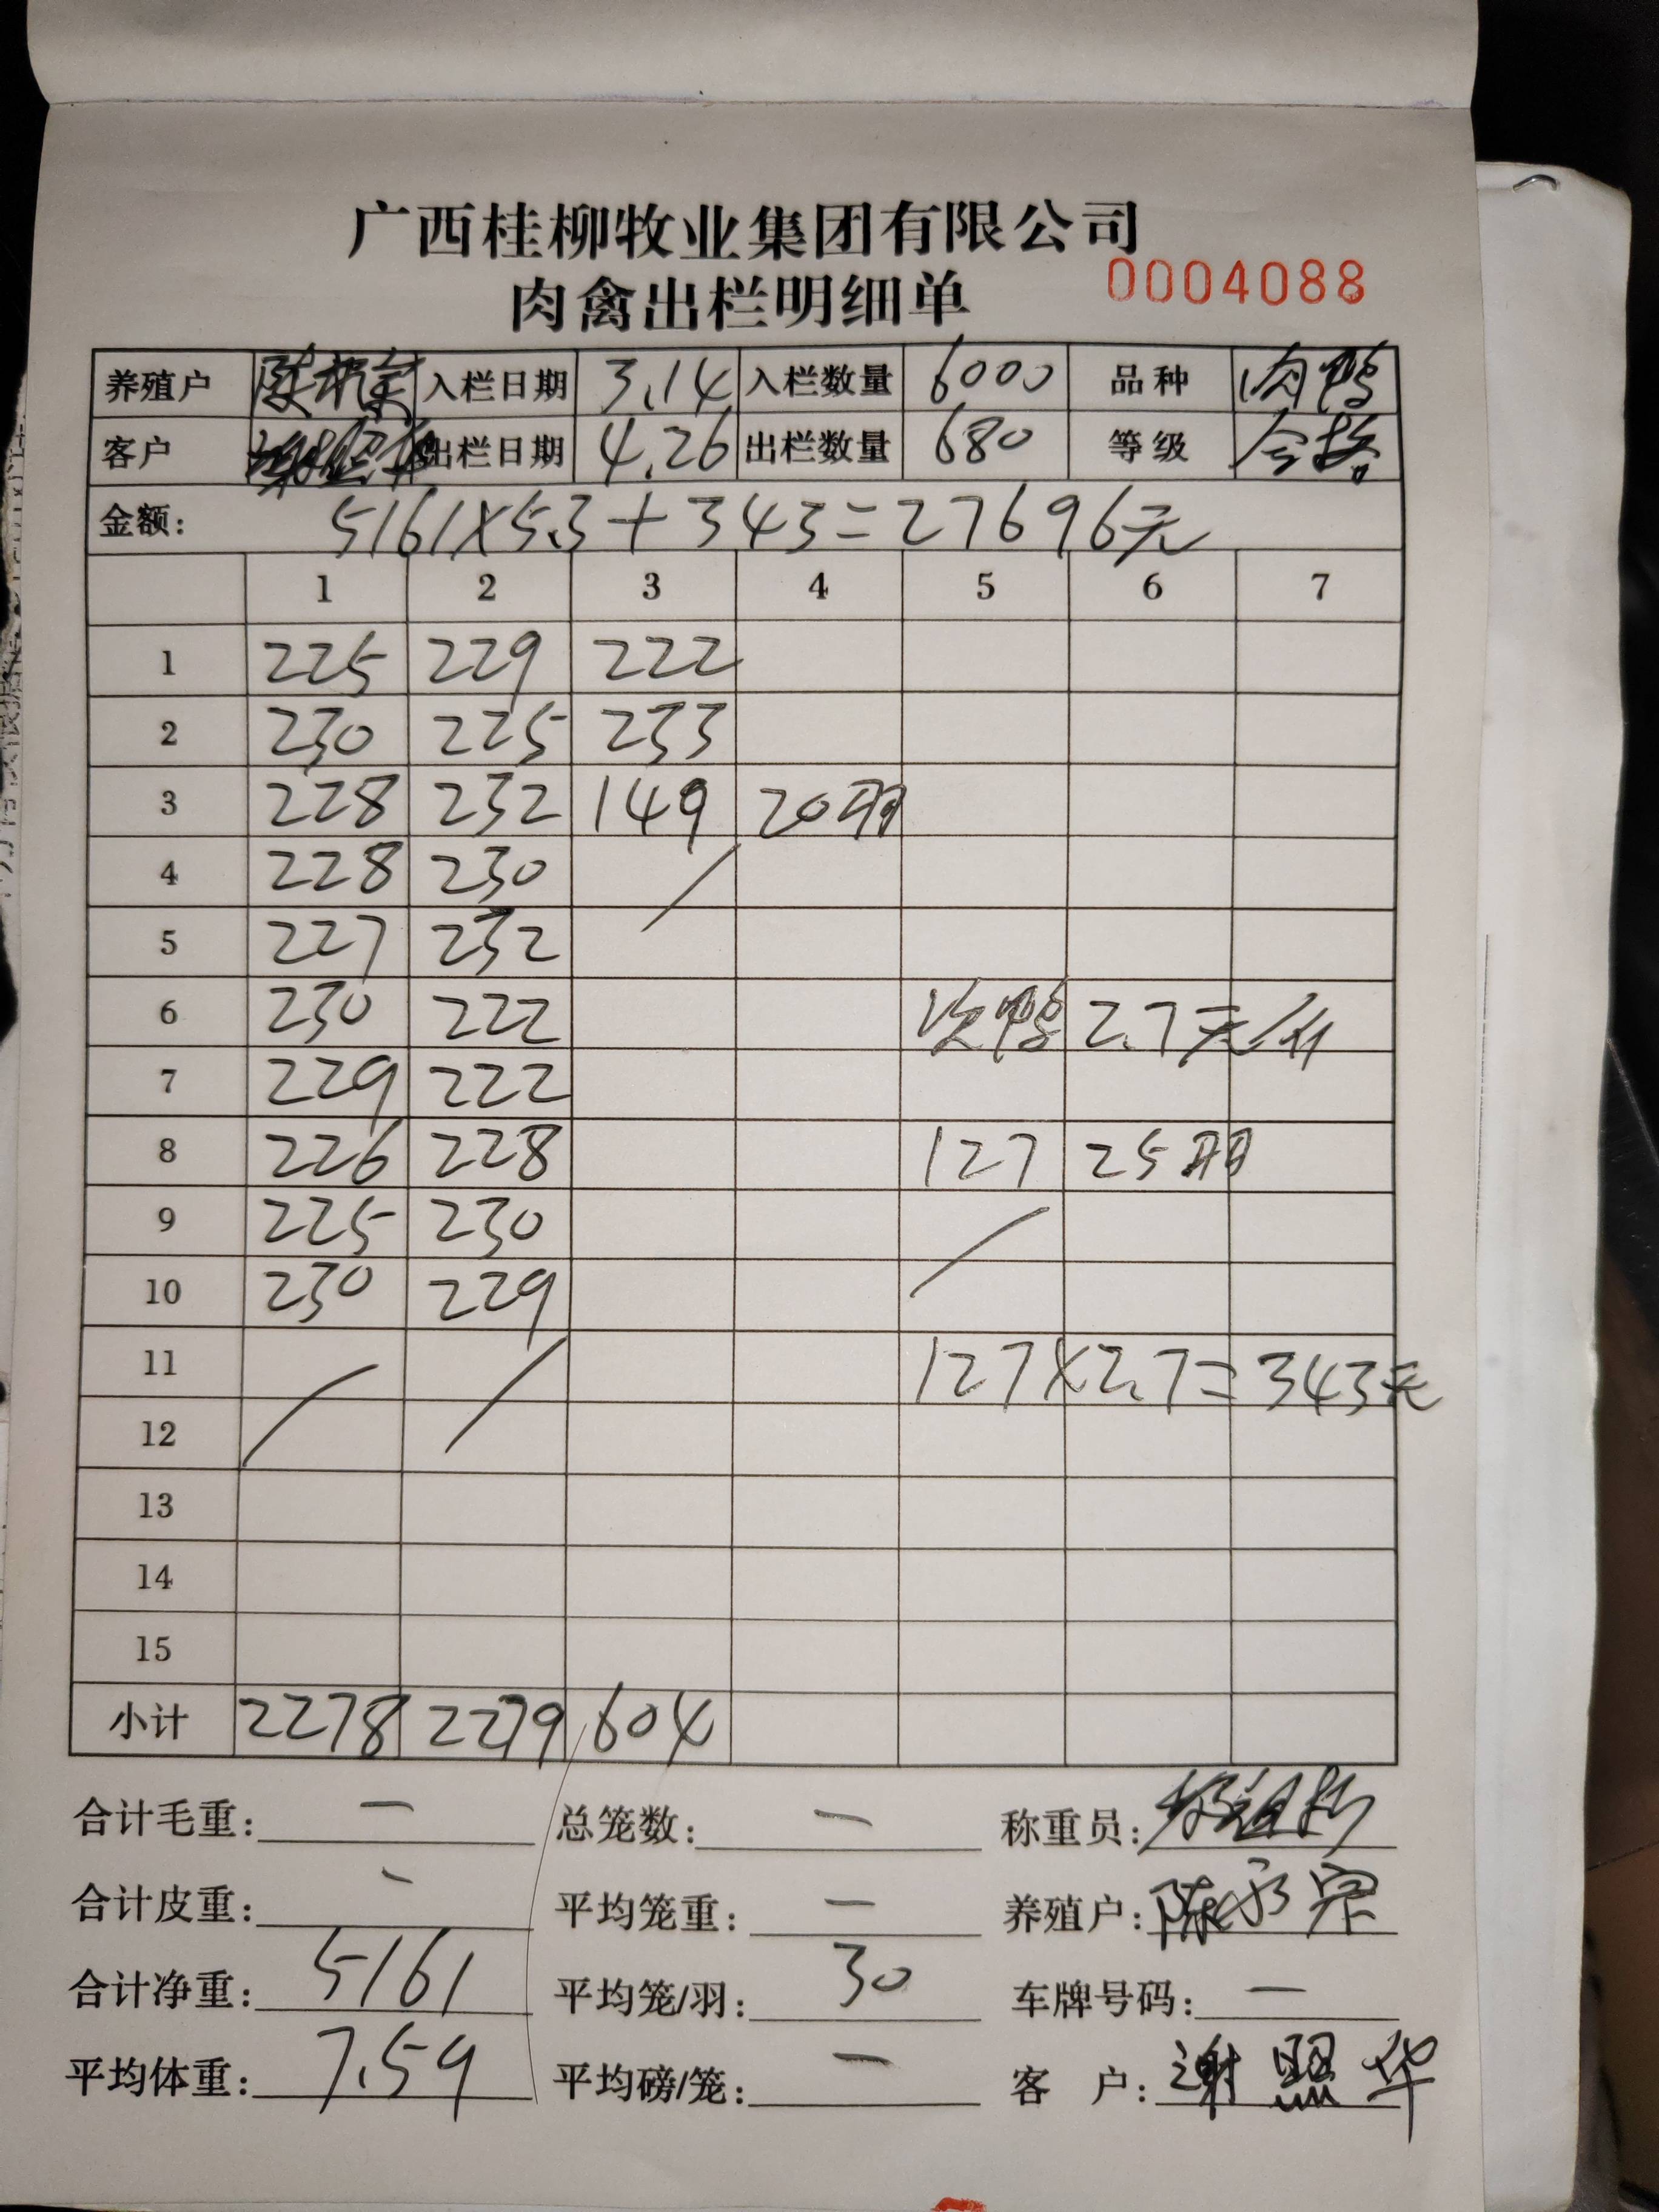 广西桂柳牧业集团有限公司
肉禽出栏明细单 0004088
养殖户 入栏日期 3.14 入栏数量 6000 品种 肉鸭
客户 谢照华 出栏日期 4.26 出栏数量 680 等级 合格
金额: 5161×5.3+343=27696元
1 2 3 4 5 6 7
1 225 229 222
2 230 225 233
3 228 232 149 20羽
4 228 230 /
5 227 232
6 230 222 次鸭 2.7元/斤
7 229 222
8 226 228 127 25羽
9 225 230 /
10 230 229
11 / / 127×2.7=343元
12
13
14
15
小计 2278 2279 604
合计毛重: — 总笼数: — 称重员:
合计皮重: - 平均笼重: — 养殖户:
合计净重: 5161 平均笼/羽: 30 车牌号码: —
平均体重: 7.59 平均磅/笼: — 客 户: 谢照华